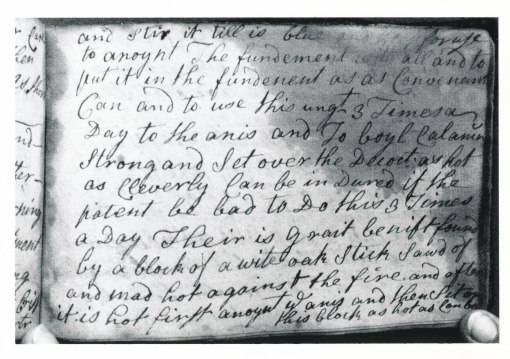 and stir it till is blue
to anoynt The fundement with all and to
put it in the fundement as as Convenant
Can and to use this ungt 3 Times a
Day to the anis and To boyl Calamin
Strong and Set over the Decoct: as hot
as Cleverly Can be in Dured if the
patent be bad to Do this 3 Times
a Day Their is grait benifit found
by a block of a wite oak Stick Sawd of
and mad hot against the fire and after
it is hot first anoynt ye anis and then Set on
this block as hot as Can be